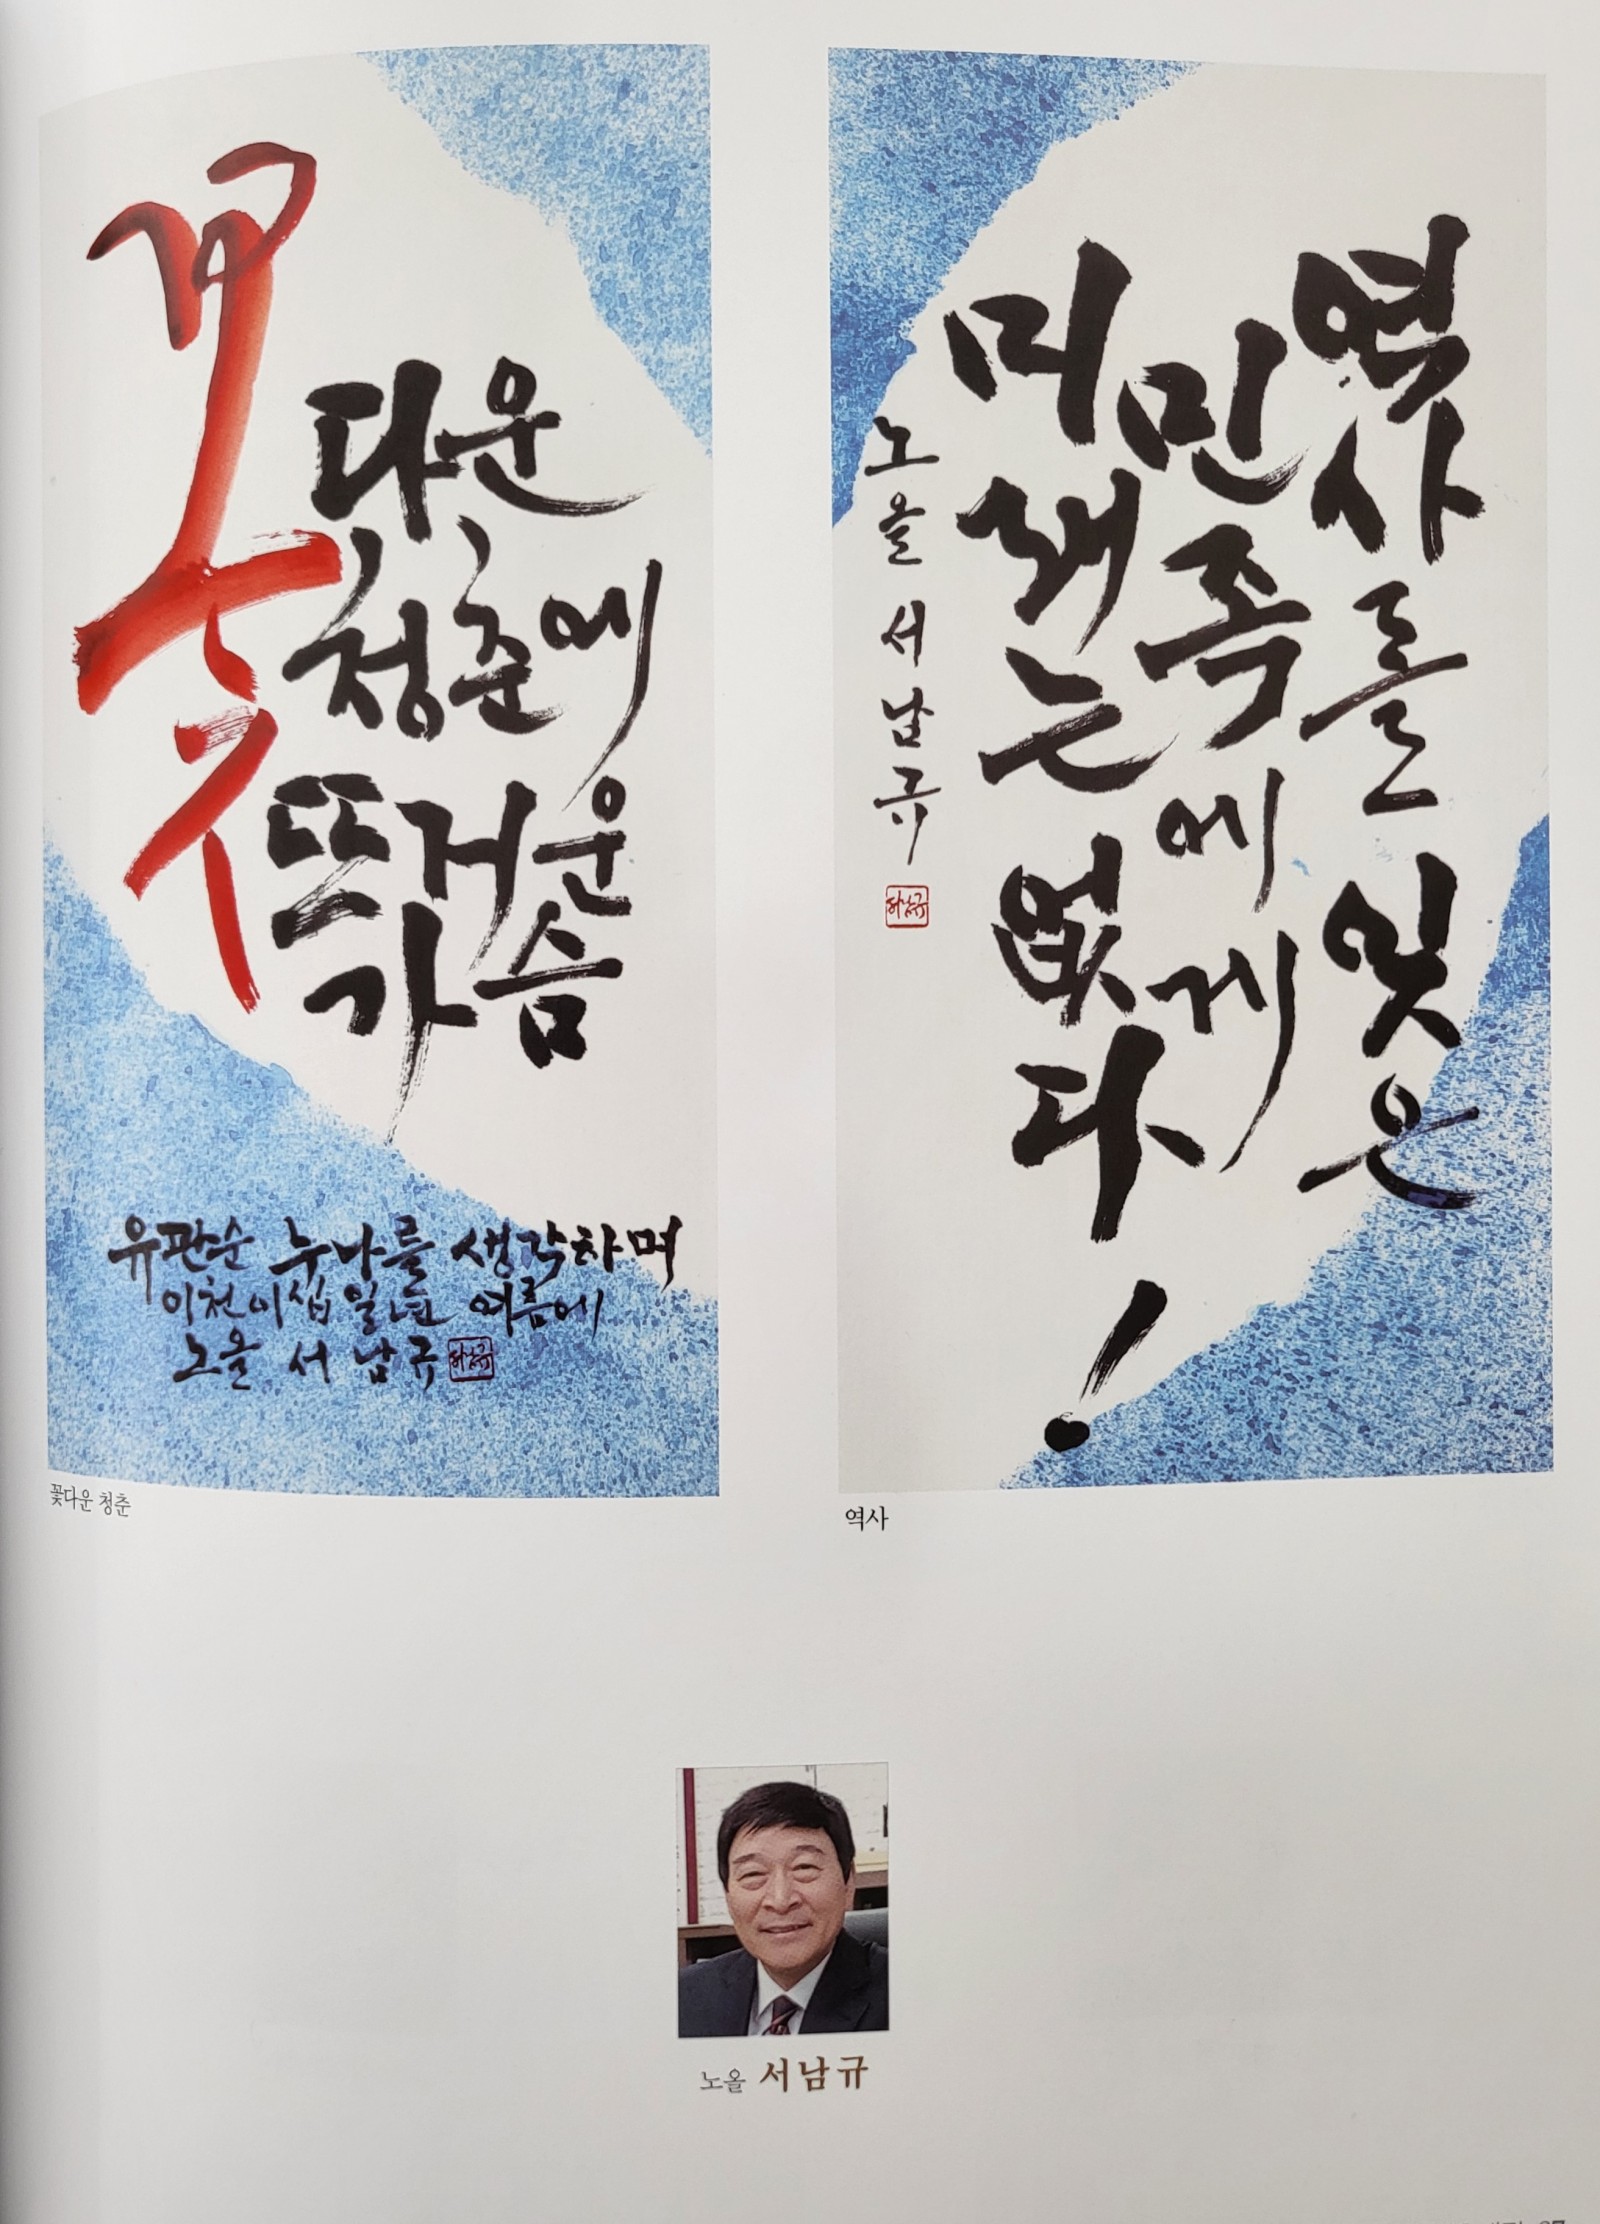 꽃
다운
청춘에
뜨거운
가슴
유관순 누나를 생각하며
이천이십일년 여름에
노을 서남규
서남규
꽃다운 청춘
역사를 잊은
민족에게
미래는 없다!
노을 서남규
서남규
역사
노을 서남규